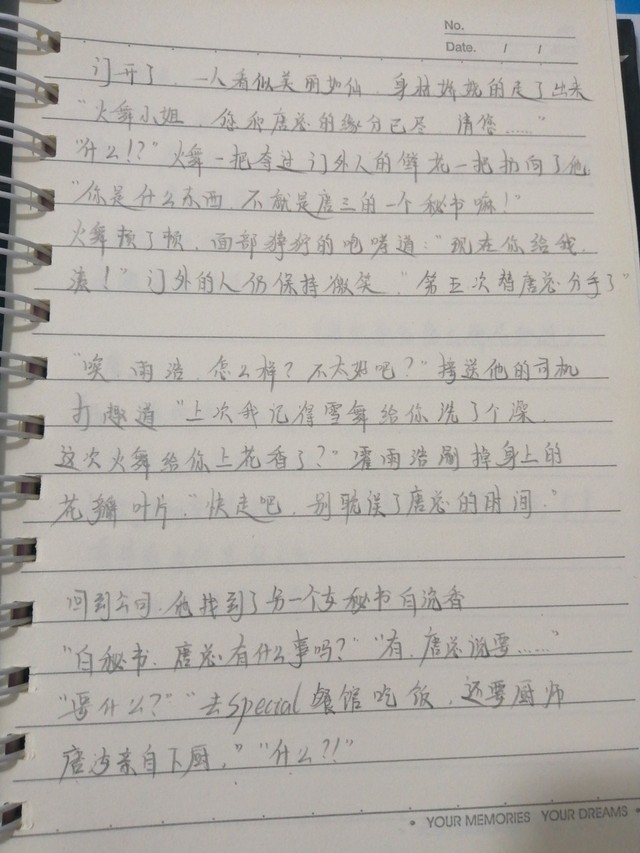 No.
Date. / /
门开了，一人看似美丽如仙，身材婀娜的走了出来
“火舞小姐，您和唐总的缘分已尽，请您……”
“什么!?”火舞一把夺过门外人的鲜花一把扔向了他
“你是什么东西，不就是唐三的一个秘书嘛！”
火舞顿了顿，面部狰狞的咆哮道：“现在你给我，
滚！”门外的人仍保持微笑，“第五次替唐总分手了”
“唉，雨浩，怎么样？不太好吧？”接送他的司机
打趣道“上次我记得雪舞给你洗了个澡，
这次火舞给你上花香了？”霍雨浩刷掉身上的
花瓣叶片，“快走吧，别耽误了唐总的时间。”
回到公司，他找到了另一个女秘书白沉香
“白秘书，唐总有什么事吗？”“有，唐总说要……”
“要什么？”“去special餐馆吃饭，还要厨师
唐亲自下厨，”“什么?!”
• YOUR MEMORIES YOUR DREAMS •